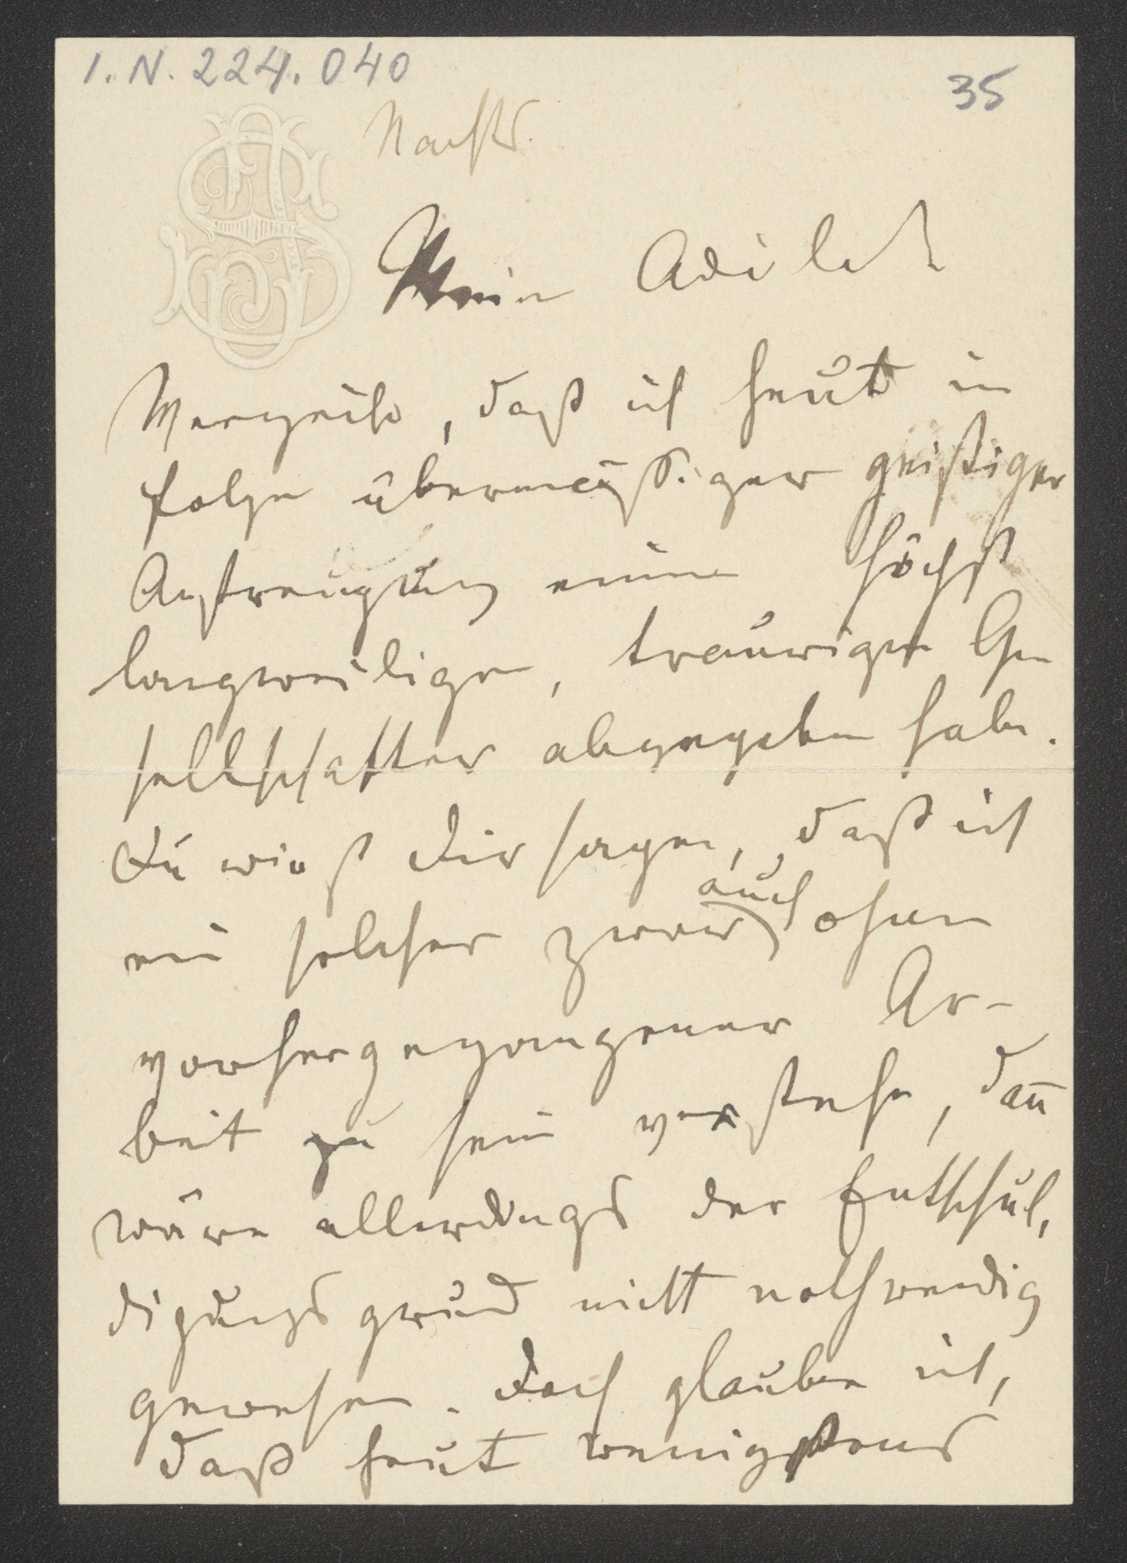 I.N. 224.040
35
Nachts.
Mein Adele
Verzeihe, daß ich heut in
Folge übermäßiger geistiger
Anstrengung einen höchst
langweiligen, traurigen Ge
sellschafter abgegeben habe.
Du wirst Dir sagen, daß ich
auch
ein solcher zwar ohne
vorhergegangener Ar-
beit zu sein verstehe, dan̄
wäre allerdings der Entschul,
digungsgrund nicht nothwendig
gewesen. Doch glaube ich,
daß heut wenigstens